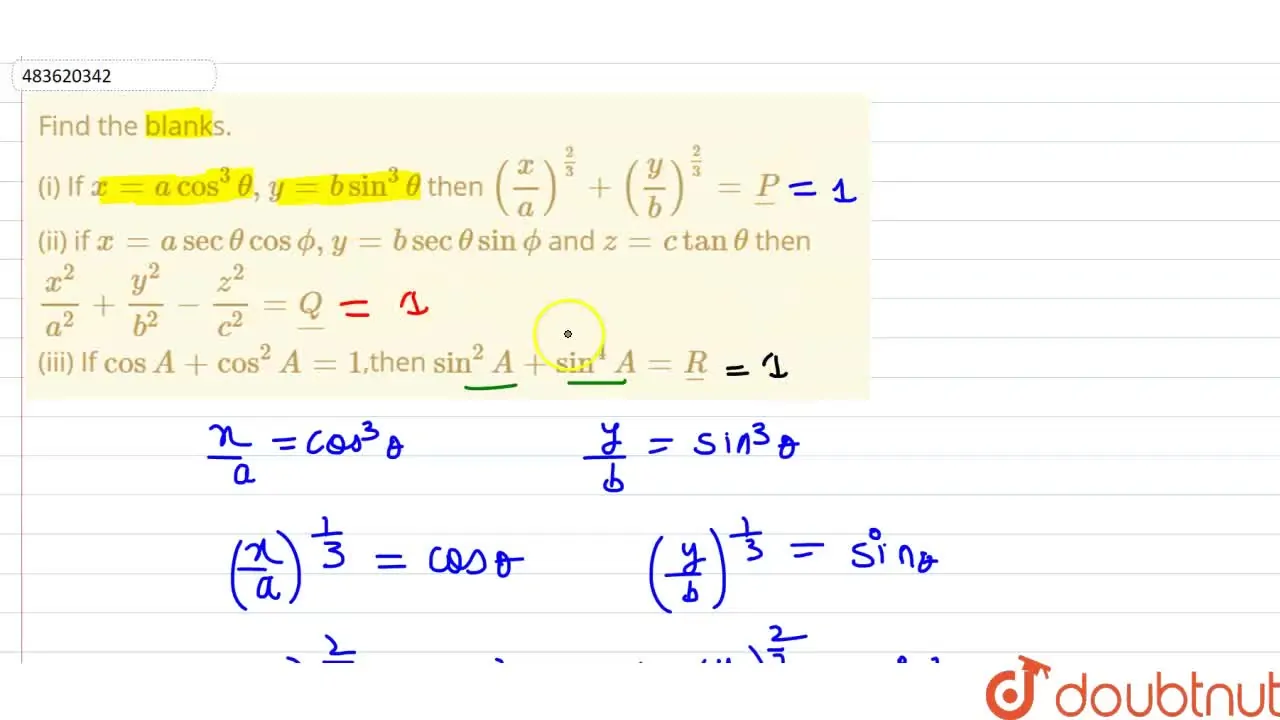 483620342
Find the blanks.
(i) If x = a cos³ θ, y = b sin³ θ then (x/a)^(2/3) + (y/b)^(2/3) = P = 1
(ii) if x = a sec θ cos ϕ, y = b sec θ sin ϕ and z = c tan θ then
x²/a² + y²/b² − z²/c² = Q = 1
(iii) If cos A + cos² A = 1,then sin² A + sin⁴ A = R = 1
x/a = cos³ θ y/b = sin³ θ
(x/a)^(1/3) = cos θ (y/b)^(1/3) = sin θ
doubtnut